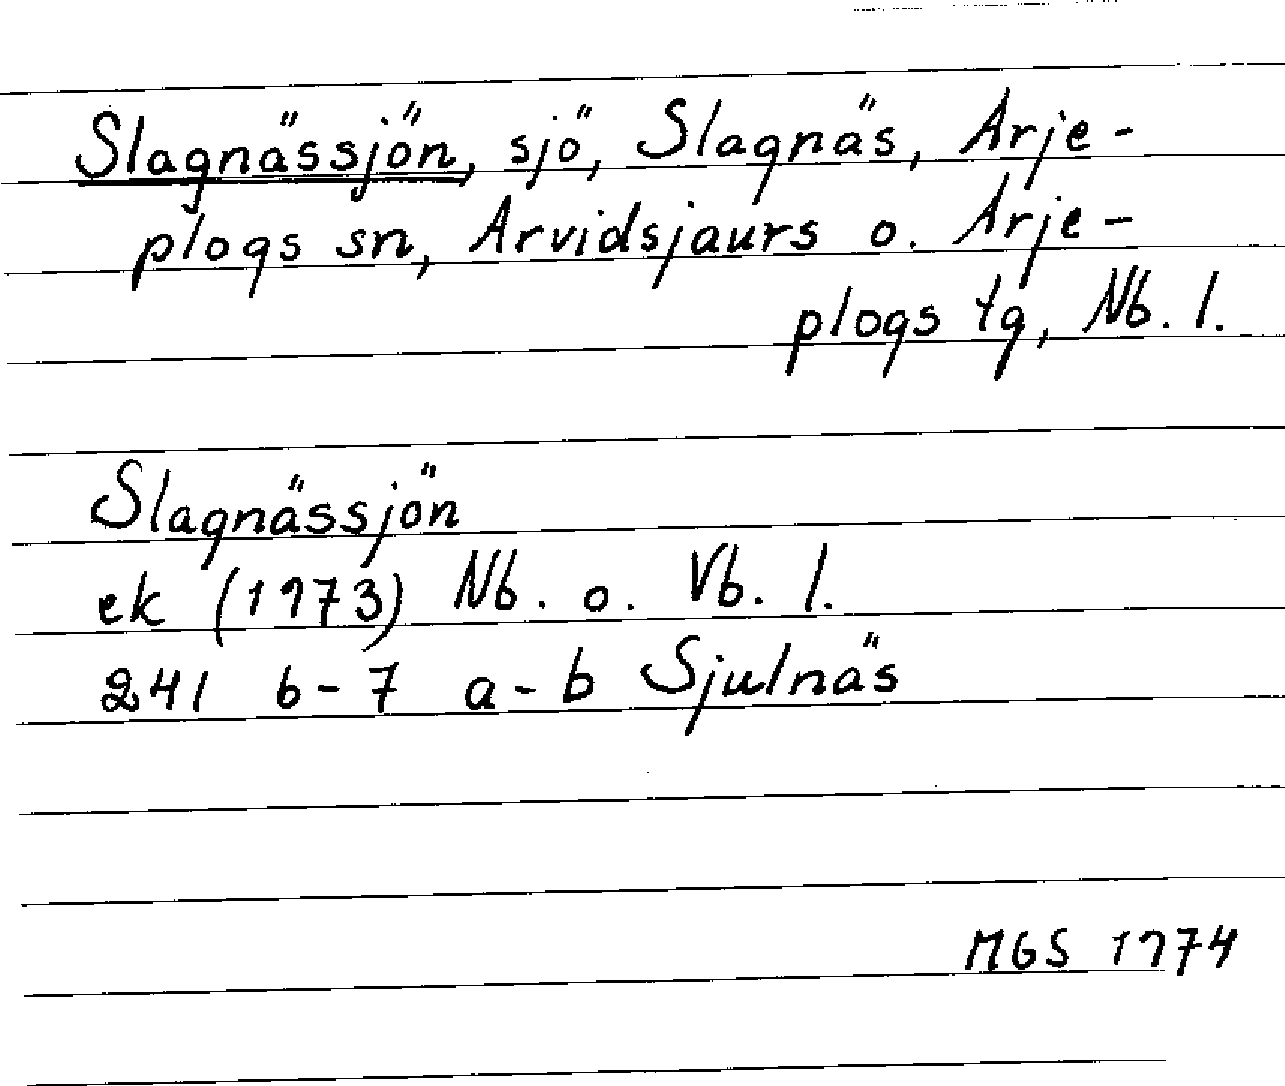 Slagnässjön, sjö, Slagnäs, Arje-
plogs sn, Arvidsjaurs o. Arje-
plogs tg, Nb. l.
Slagnässjön
ek (1973) Nb. o. Vb. l.
241 6-7 a-b Sjulnäs
MGS 1974